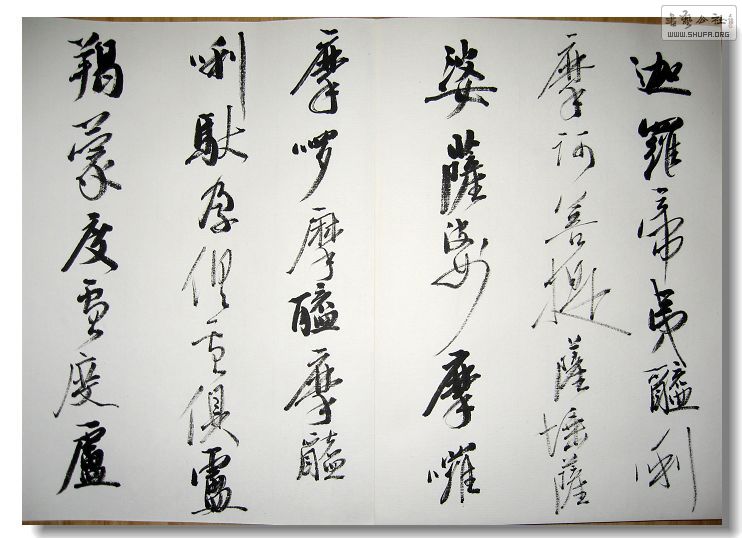 迦羅帝夷醯唎
摩訶菩提薩埵薩
婆薩婆摩囉
摩啰摩醯摩醯
唎馱孕俱盧俱盧
羯蒙度盧度盧
书艺公社
WWW.SHUFA.ORG